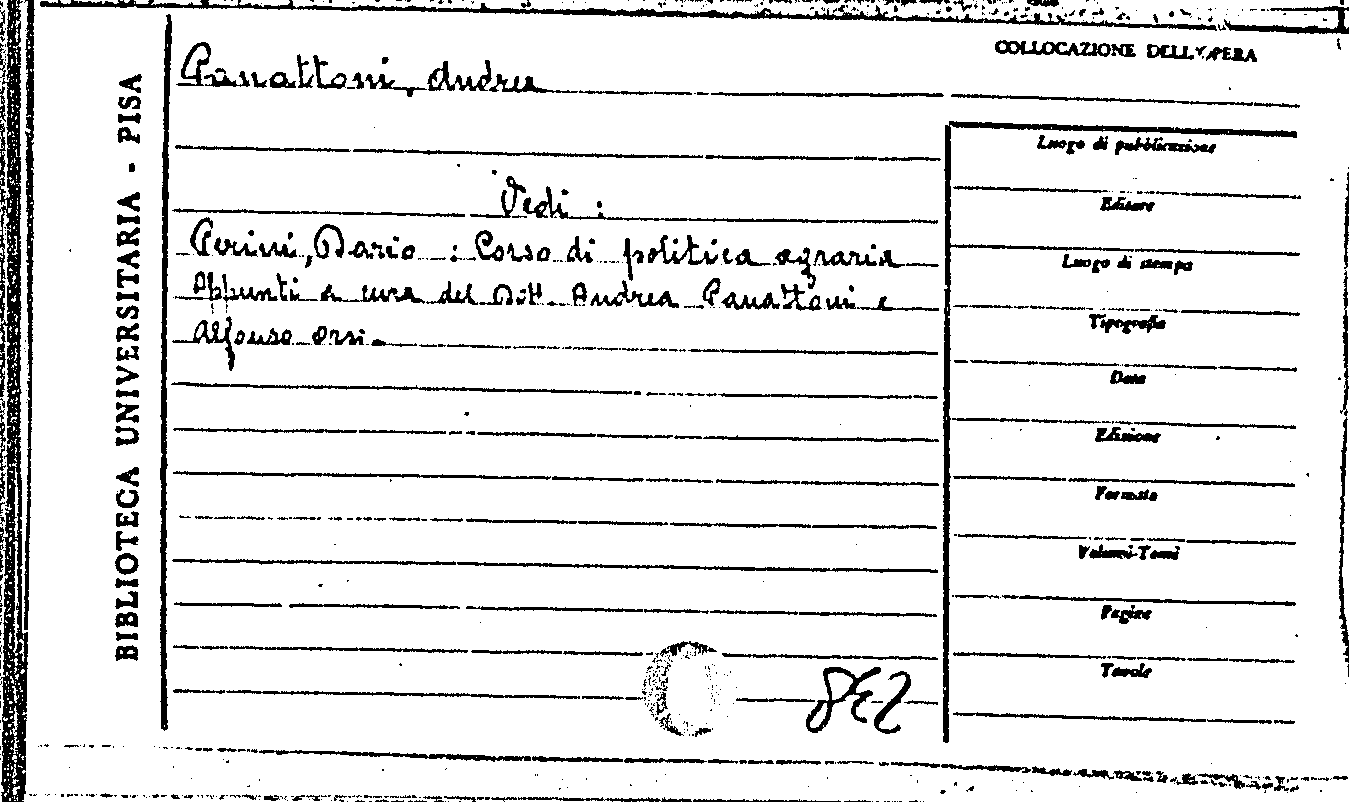 BIBLIOTECA UNIVERSITARIA - PISA
COLLOCAZIONE DELL'OPERA
Panattoni, Andrea
Vedi :
Perini, Dario : Corso di politica agraria
Appunti a cura del Dott. Andrea Panattoni e
Alfonso Orsi.
Luogo di pubblicazione
Editore
Luogo di stampa
Tipografia
Data
Edizione
Formato
Volumi-Tomi
Pagine
Tavole